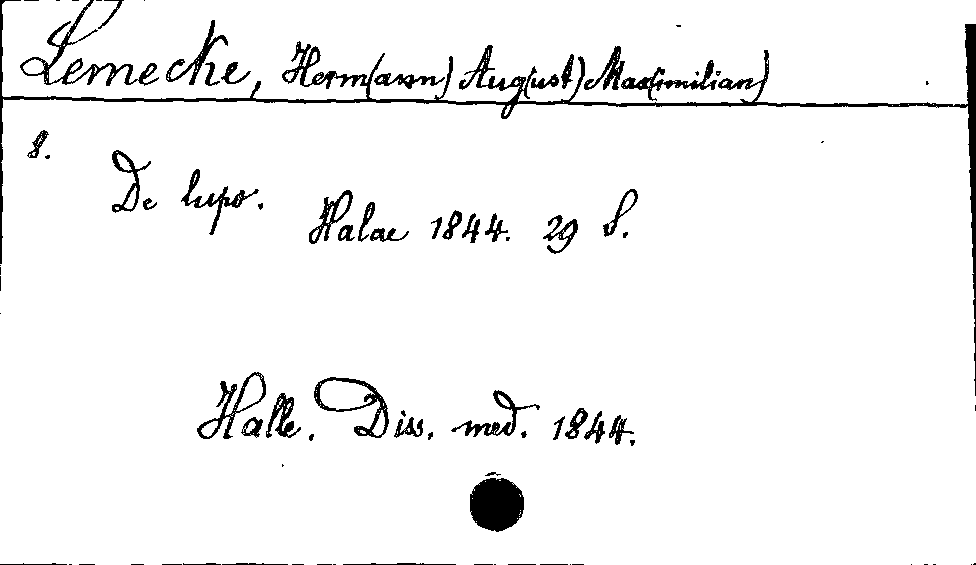 Lemecke, Herm(ann) Aug(ust) Max(imilian)
8.
De lupo.
Halae 1844. 29 S.
Halle. Diss. med. 1844.